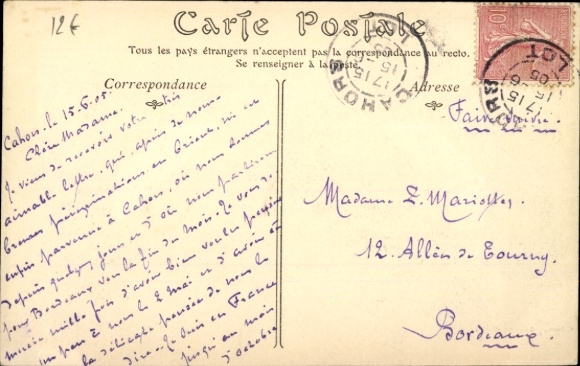 12€
Carte Postale
Tous les pays étrangers n'acceptent pas la correspondance au recto.
Se renseigner à la poste.
Correspondance
Adresse
CAHORS
17 15
15 -6
05
LOT
Cahors, le 15.6.05.
Chère Madame.
Je viens de recevoir votre très
aimable lettre, qui, après de nom-
breuses pérégrinations en m'est
enfin parvenue à Cahors, où nous sommes
depuis quelques jours et d'où nous partirons
pour Bordeaux vers la fin du mois. Je vous re-
mercie mille fois d'avoir bien voulu penser
un peu à nous le 2 Mai et d'avoir eu
la délicate pensée de nous le
dire. Je suis en France
jusqu'au mois
d'octobre
Faire suivre
Madame L.
12. Allées de Tourny
Bordeaux.